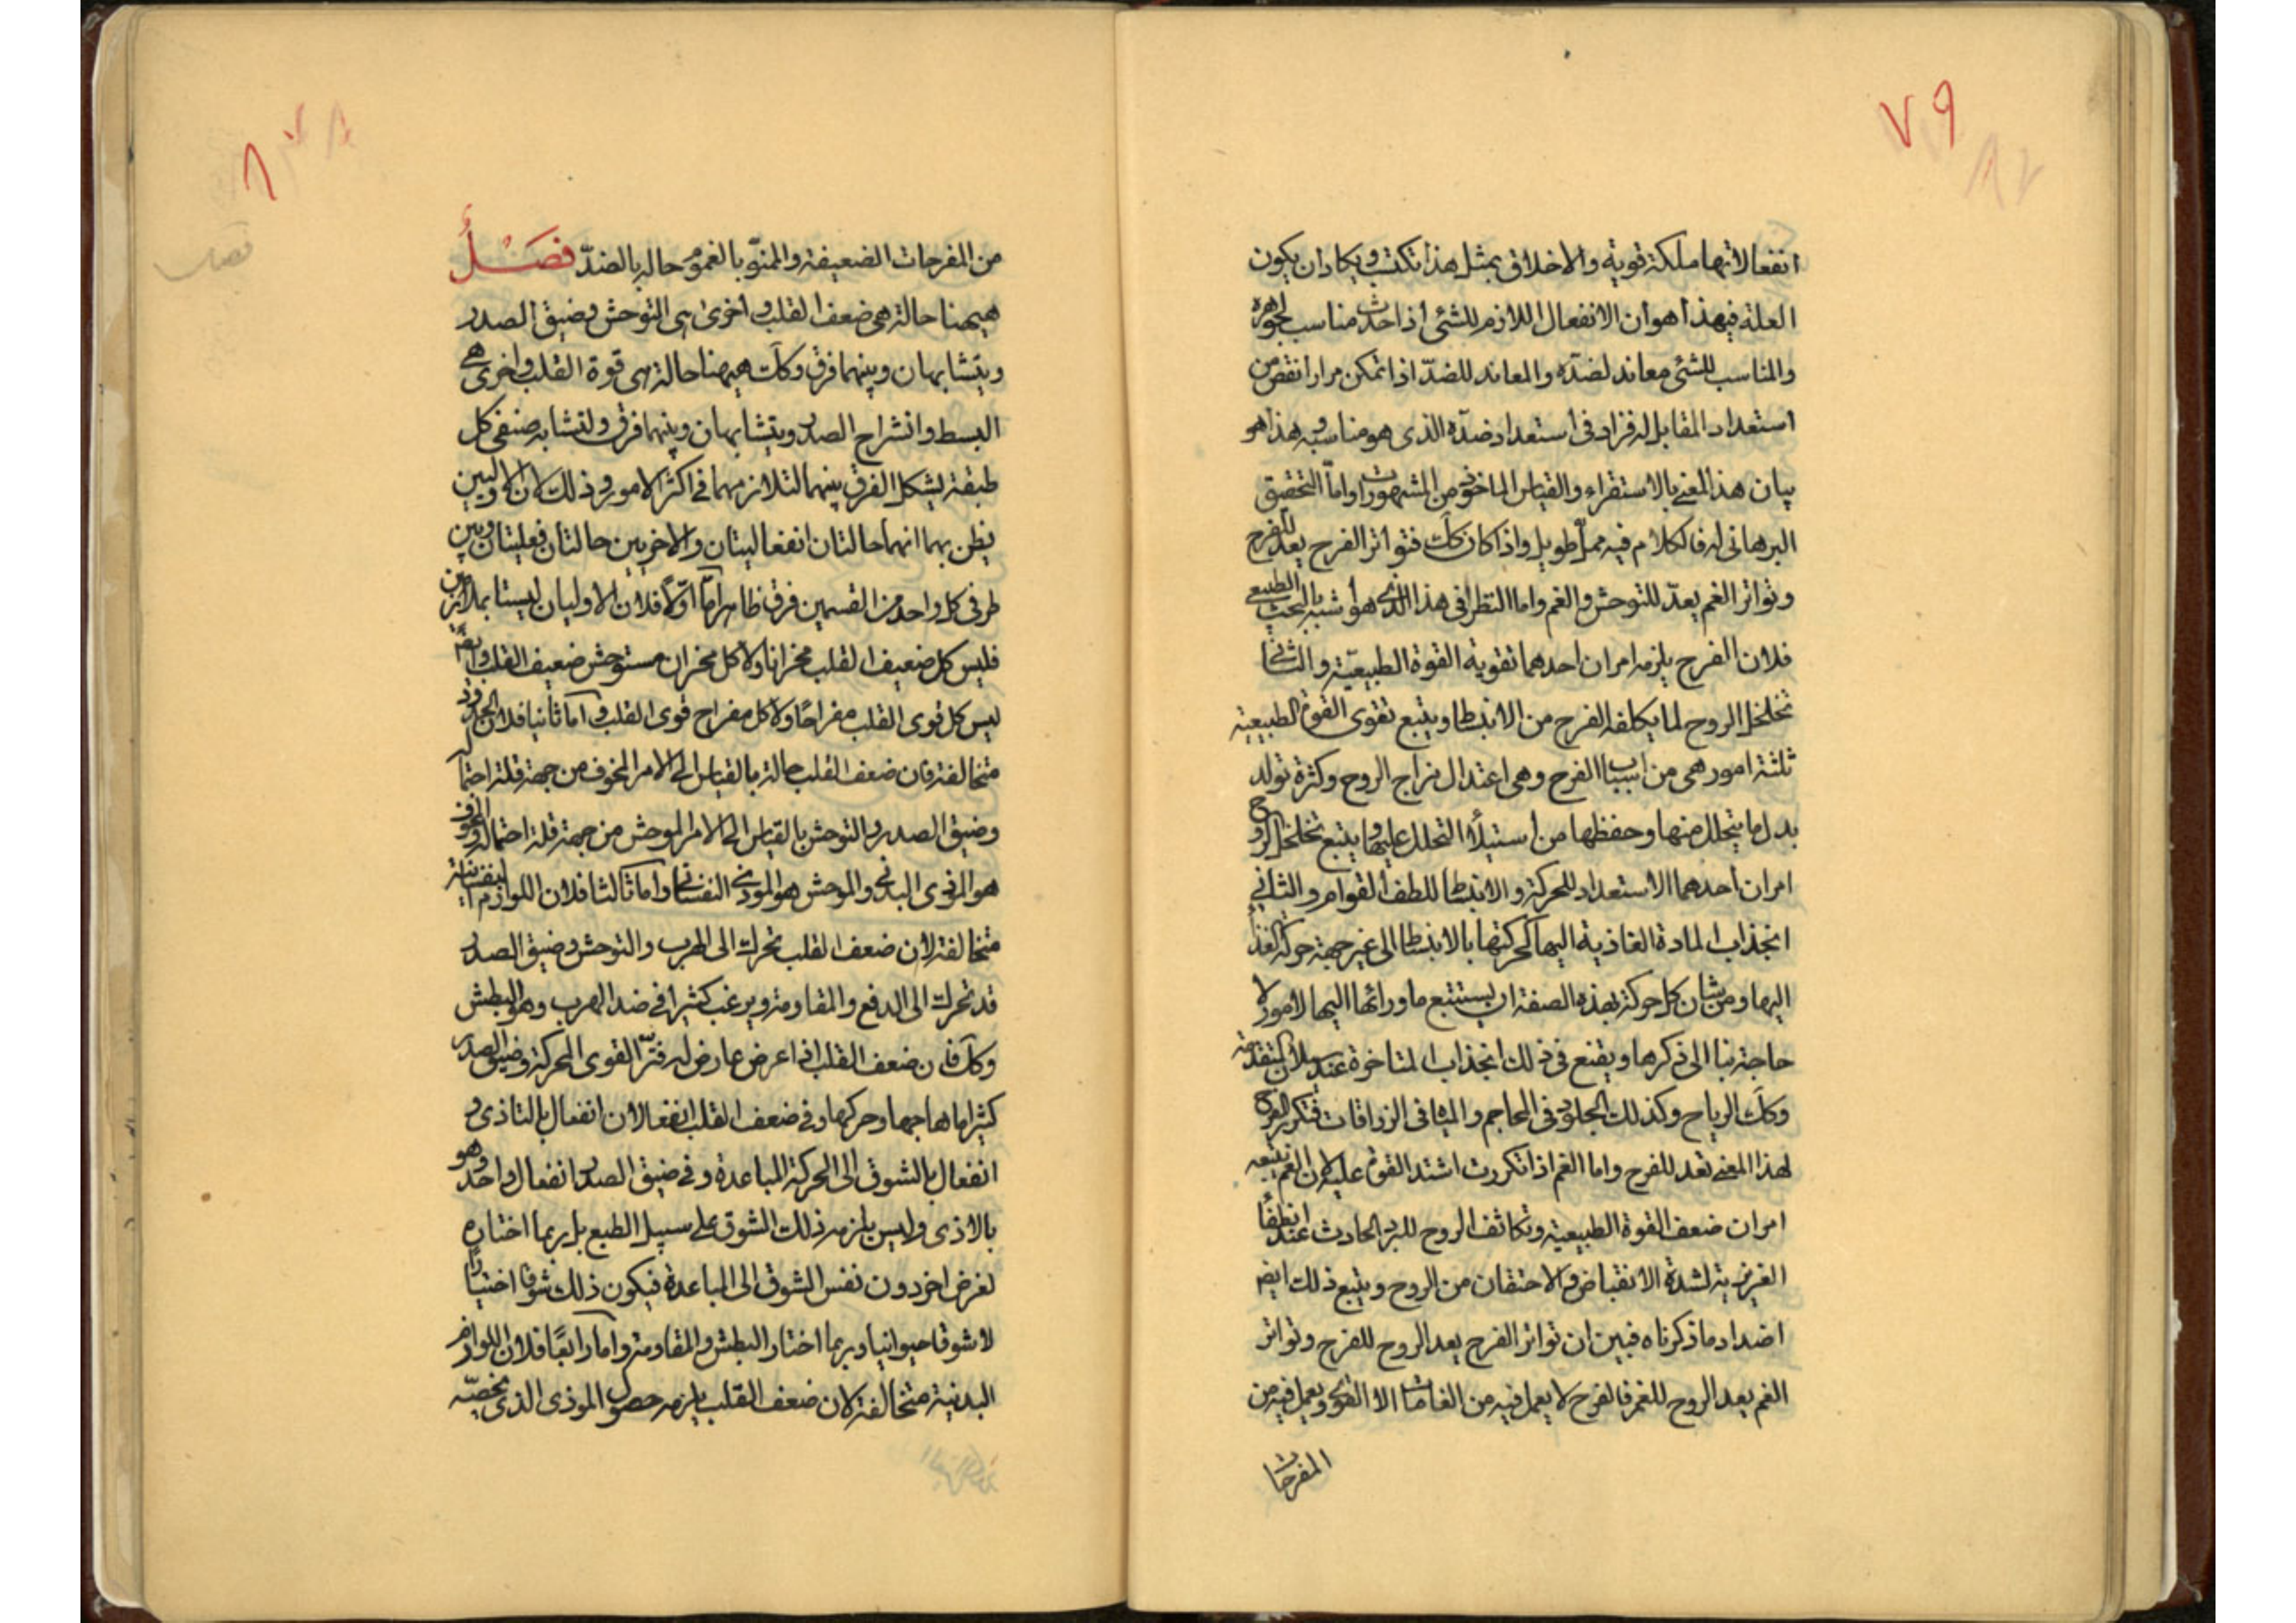 ٧٩
انفعالاتها ملكة قوية والاخلاق بمثل هذا تكتسب ويكاد ان يكون
العلة فيهذا هو ان الانفعال اللازم للشئ اذا حدث مناسب لجوهره
والمناسب للشئ معاند لضدّه والمعاند للضدّ اذا تمكن مرارا نقص من
استعداد المقابل له فزاد فى استعداد ضدّه الذى هو مناسبه وهذا هو
بيان هذا المعنى بالاستقراء والقياس الماخوذ من المشهورات واما التحقيق
البرهانى له فالكلام فيه طويل واذا كان كك فتواتر الفرح يعدّ للفرح
وتواتر الغم يعدّ للتوحش والغم واما النظر فى هذا الذى هو اشبه بالبحث الطبيعى
فلان الفرح يلزمه امران احدهما تقوية القوة الطبيعيّة والثانى
تخلخل الروح لما يكلفه الفرح من الانبساط ويتبع تقوى القوة الطبيعية
ثلثة امور هى من اسباب الفرح وهى اعتدال مزاج الروح وكثرة تولد
بدل ما يتحلل منها وحفظها من استيلأ التحلل عليها ويتبع تخلخل الروح
امران احدهما الاستعداد للحركة والانبساط للطف القوام والثانى
انجذاب المادة الغاذية اليها لحركتها بالانبساط الى غير جهة حركة الغذأ
اليها ومن شان كل حركة بهذه الصفة ان يستتبع ما ورائها اليها لامور لا
حاجة بنا الى ذكرها ويقنع فى ذلك انجذاب المتاخرة عند سيلان المتقدمة
وكك الرياح وكذلك الجلود فى المحاجم والمياه فى الزراقات فتكرر الفرح
لهذا المعنى تعد للفرح واما الغم اذا تكررت اشتد القوة عليه لان الغم يتبعه
امران ضعف القوة الطبيعية وتكاثف الروح للبرد الحادث عند انطفأ
الغريزية لشدة الانقباض والاحتقان من الروح ويتبع ذلك ايضا
اضداد ما ذكرناه فبين ان تواتر الفرح يعد الروح للفرح وتواتر
الغم يعد الروح للغم فالفرح لا يعمل فيه من الغامات الا القوى ويعمل فيه من
المفرحات
من المفرحات الضعيفة والممنوّ بالغموم حاله بالضدّ فصل
هيهنا حالة هى ضعف القلب واخرى هى التوحش وضيق الصدر
ويتشابهان وبينهما فرق وكك هيهنا حالة هى قوة القلب واخرى هى
البسط وانشراح الصدر ويتشابهان وبينهما فرق ولتشابه صنفى كل
طبقة يشكل الفرق بينهما لتلازمهما فى اكثر الامور وذلك لان الاوليين
يظن بهما انهما حالتان انفعاليتان والاخريين حالتان فعليتان وبين
طرفى كل واحد من القسمين فرق ظاهر امّا اوّلا فلان الاوليان ليستا بمتلازمين
فليس كل ضعيف القلب محزانا ولا كل محزان مستوحش ضعيف القلب وايضا
ليس كل قوى القلب مفراحا ولا كل مفراح قوى القلب واما ثانيا فلان الحدود
متخالفة فان ضعف القلب حالة بالقياس الى الامر المخوف من جهة قلة احتماله
وضيق الصدر والتوحش بالقياس الى الامر الموحش من جهة قلة احتماله والمخوف
هو المؤذى البدنى والموحش هو الموذى النفسانى واما ثالثا فلان اللوازم النفسانية
متخالفة لان ضعف القلب تحرك الى الهرب والتوحش وضيق الصدر
قد تحرك الى الدفع والمقاومة ويرغب كثيرا فى ضد الهرب وهو البطش
وكك فان ضعف القلب اذا عرض عارض له فترّ القوى المحركة وضيق الصدر
كثيرا ما هاجها وحركها وفى ضعف القلب انفعالان انفعال بالتاذى و
انفعال بالشوق الى الحركة المباعدة وفى ضيق الصدر انفعال واحد وهو
بالاذى وليس يلزمه ذلك الشوق على سبيل الطبع بل ربما اختاره
لغرض اخر دون نفس الشوق الى المباعدة فيكون ذلك شوقا اختياريا
لا شوقا حيوانيا وربما اختار البطش والمقاومة واما رابعا فلان اللوازم
البدنية متخالفة لان ضعف القلب يلزمه حصول الموذى الذى يخصّه